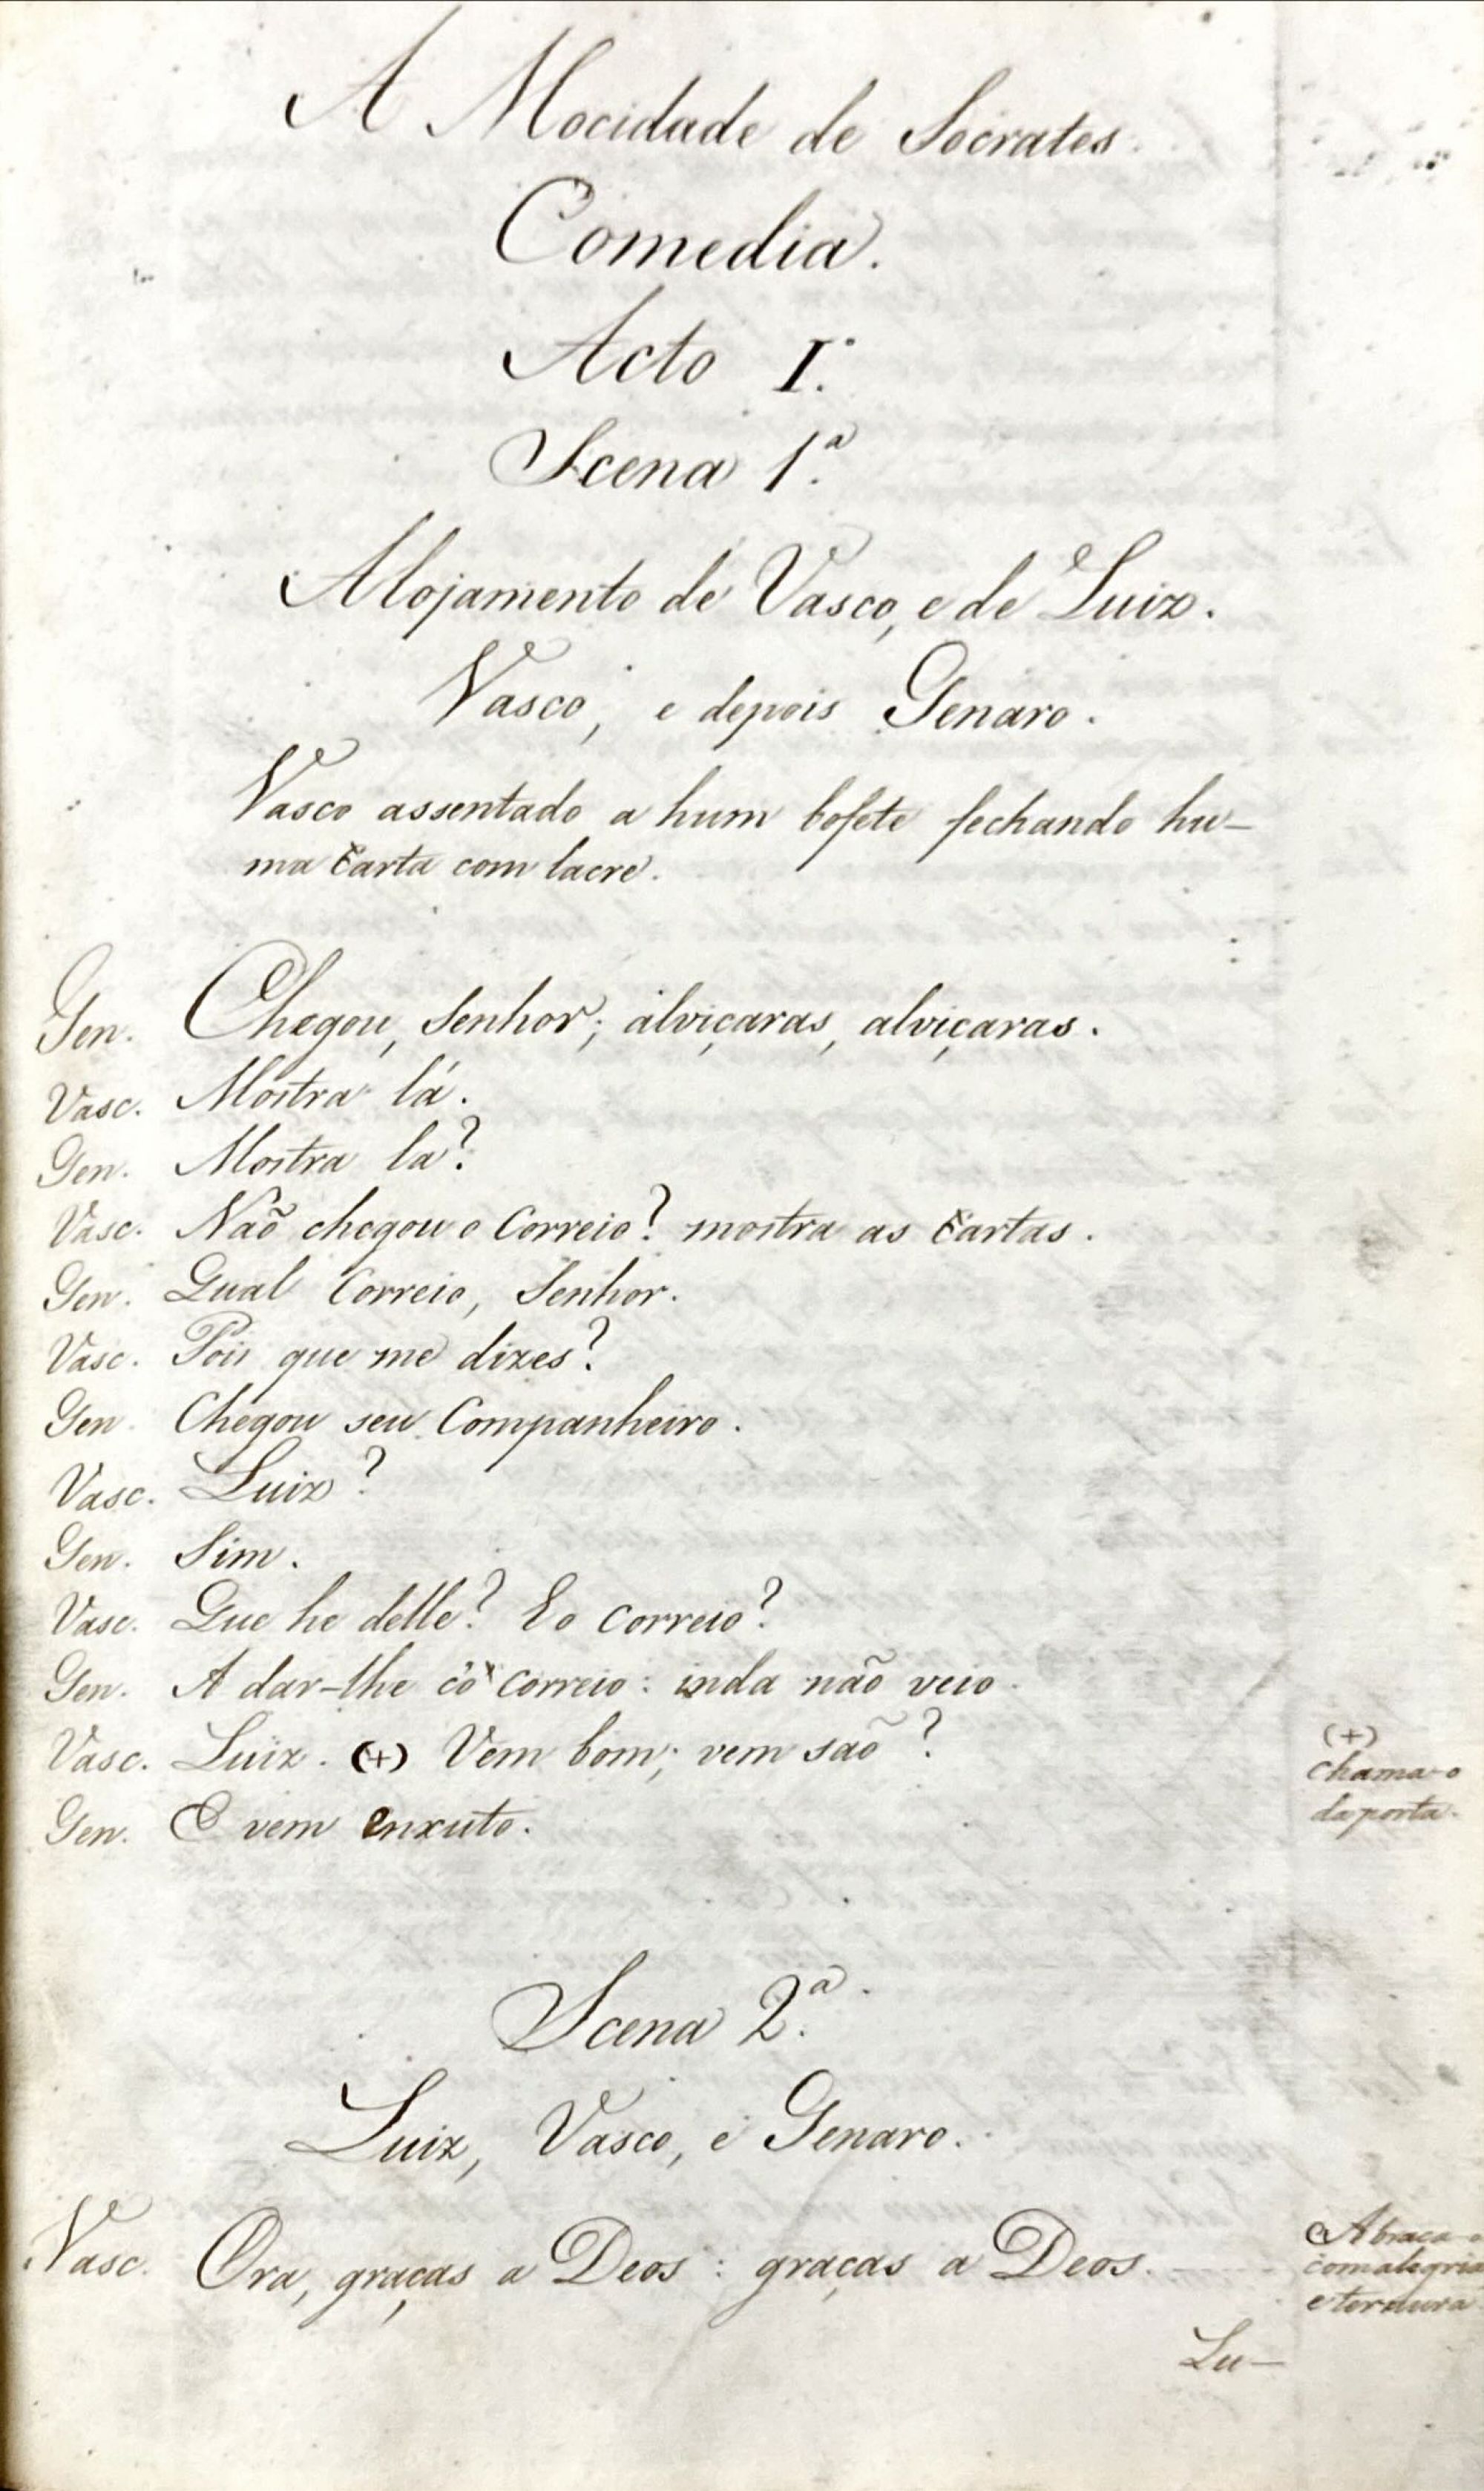 A Mocidade de Socrates.
Comedia.
Acto I.º
Scena 1.ª
Alojamento de Vasco, e de Luiz.
Vasco, e depois Genaro.
Vasco assentado a hum bofete fechando hu-
ma Carta com lacre.
Gen. Chegou, Senhor; alviçaras, alviçaras.
Vasc. Mostra lá.
Gen. Mostra la?
Vasc. Naõ chegou o Correio? mostra as Cartas.
Gen. Qual Correio, Senhor.
Vasc. Pois que me dizes?
Gen. Chegou seu Companheiro.
Vasc. Luiz?
Gen. Sim.
Vasc. Que he delle? E o Correio?
Gen. A dar-lhe co Correio: inda naõ veio.
Vasc. Luiz. (+) Vem bom; vem saõ?
(+)
chama-o
da porta.
Gen. E vem enxuto.
Scena 2.ª
Luiz, Vasco, e Genaro.
Vasc. Ora, graças a Deos: graças a Deos.
Abraça-o
com alegria
e ternura
Lu-